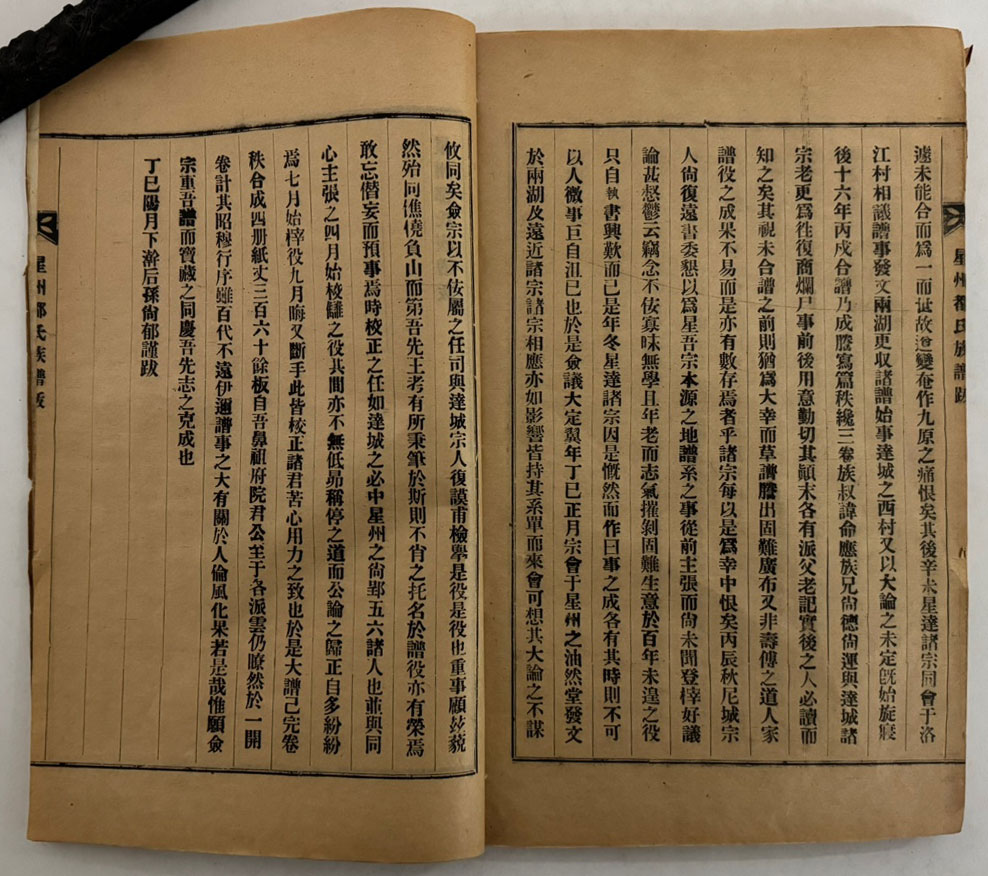 星州都氏族譜跋
遽未能合而爲一而並故遭變奄作九原之痛恨矣其後辛未星達諸宗同會于洛
江村相議譜事發文兩湖更収諸譜始事達城之西村又以大論之未定旣始旋寢
後十六年丙戌合譜乃成謄寫篇秩纔三卷族叔諱命應族兄尙德尙運與達城諸
宗老更爲徃復商爛尸事前後用意勤切其顚末各有派父老記實後之人必讀而
知之矣其視未合譜之前則猶爲大幸而草譜謄出固難廣布又非壽傳之道人家
譜役之成果不易而是亦有數存焉者乎諸宗每以是爲幸中恨矣丙辰秋尼城宗
人尙復遠書委懇以爲星吾宗本源之地譜系之事從前主張而尙未聞登梓好議
論甚愁鬱云竊念不佞寡昧無學且年老而志氣摧剝固難生意於百年未遑之役
只自執書興歎而已是年冬星達諸宗因是慨然而作曰事之成各有其時則不可
以人微事巨自沮已也於是僉議大定翼年丁巳正月宗會于星州之油然堂發文
於兩湖及遠近諸宗諸宗相應亦如影響皆持其系單而來會可想其大論之不謀
攸同矣僉宗以不佞屬之任司與達城宗人復謨甫檢擧是役是役也重事顧玆藐
然殆同僬僥負山而第吾先王考有所秉筆於斯則不肖之托名於譜役亦有榮焉
敢忘僭妄而預事焉時校正之任如達城之必中星州之尙郢五六諸人也並與同
心主張之四月始校讎之役其間亦不無低昻稱停之道而公論之歸正自多紛紛
焉七月始梓役九月晦又斷手此皆校正諸君苦心用力之致也於是大譜已完卷
秩合成四册紙丈三百六十餘板自吾鼻祖府院君公主于各派雲仍瞭然於一開
卷計其昭穆行序雖百代不遠伊邇譜事之大有關於人倫風化果若是哉惟願僉
宗重吾譜而寶藏之同慶吾先志之克成也
丁巳陽月下澣后孫尙郁謹跋
星州都氏族譜跋